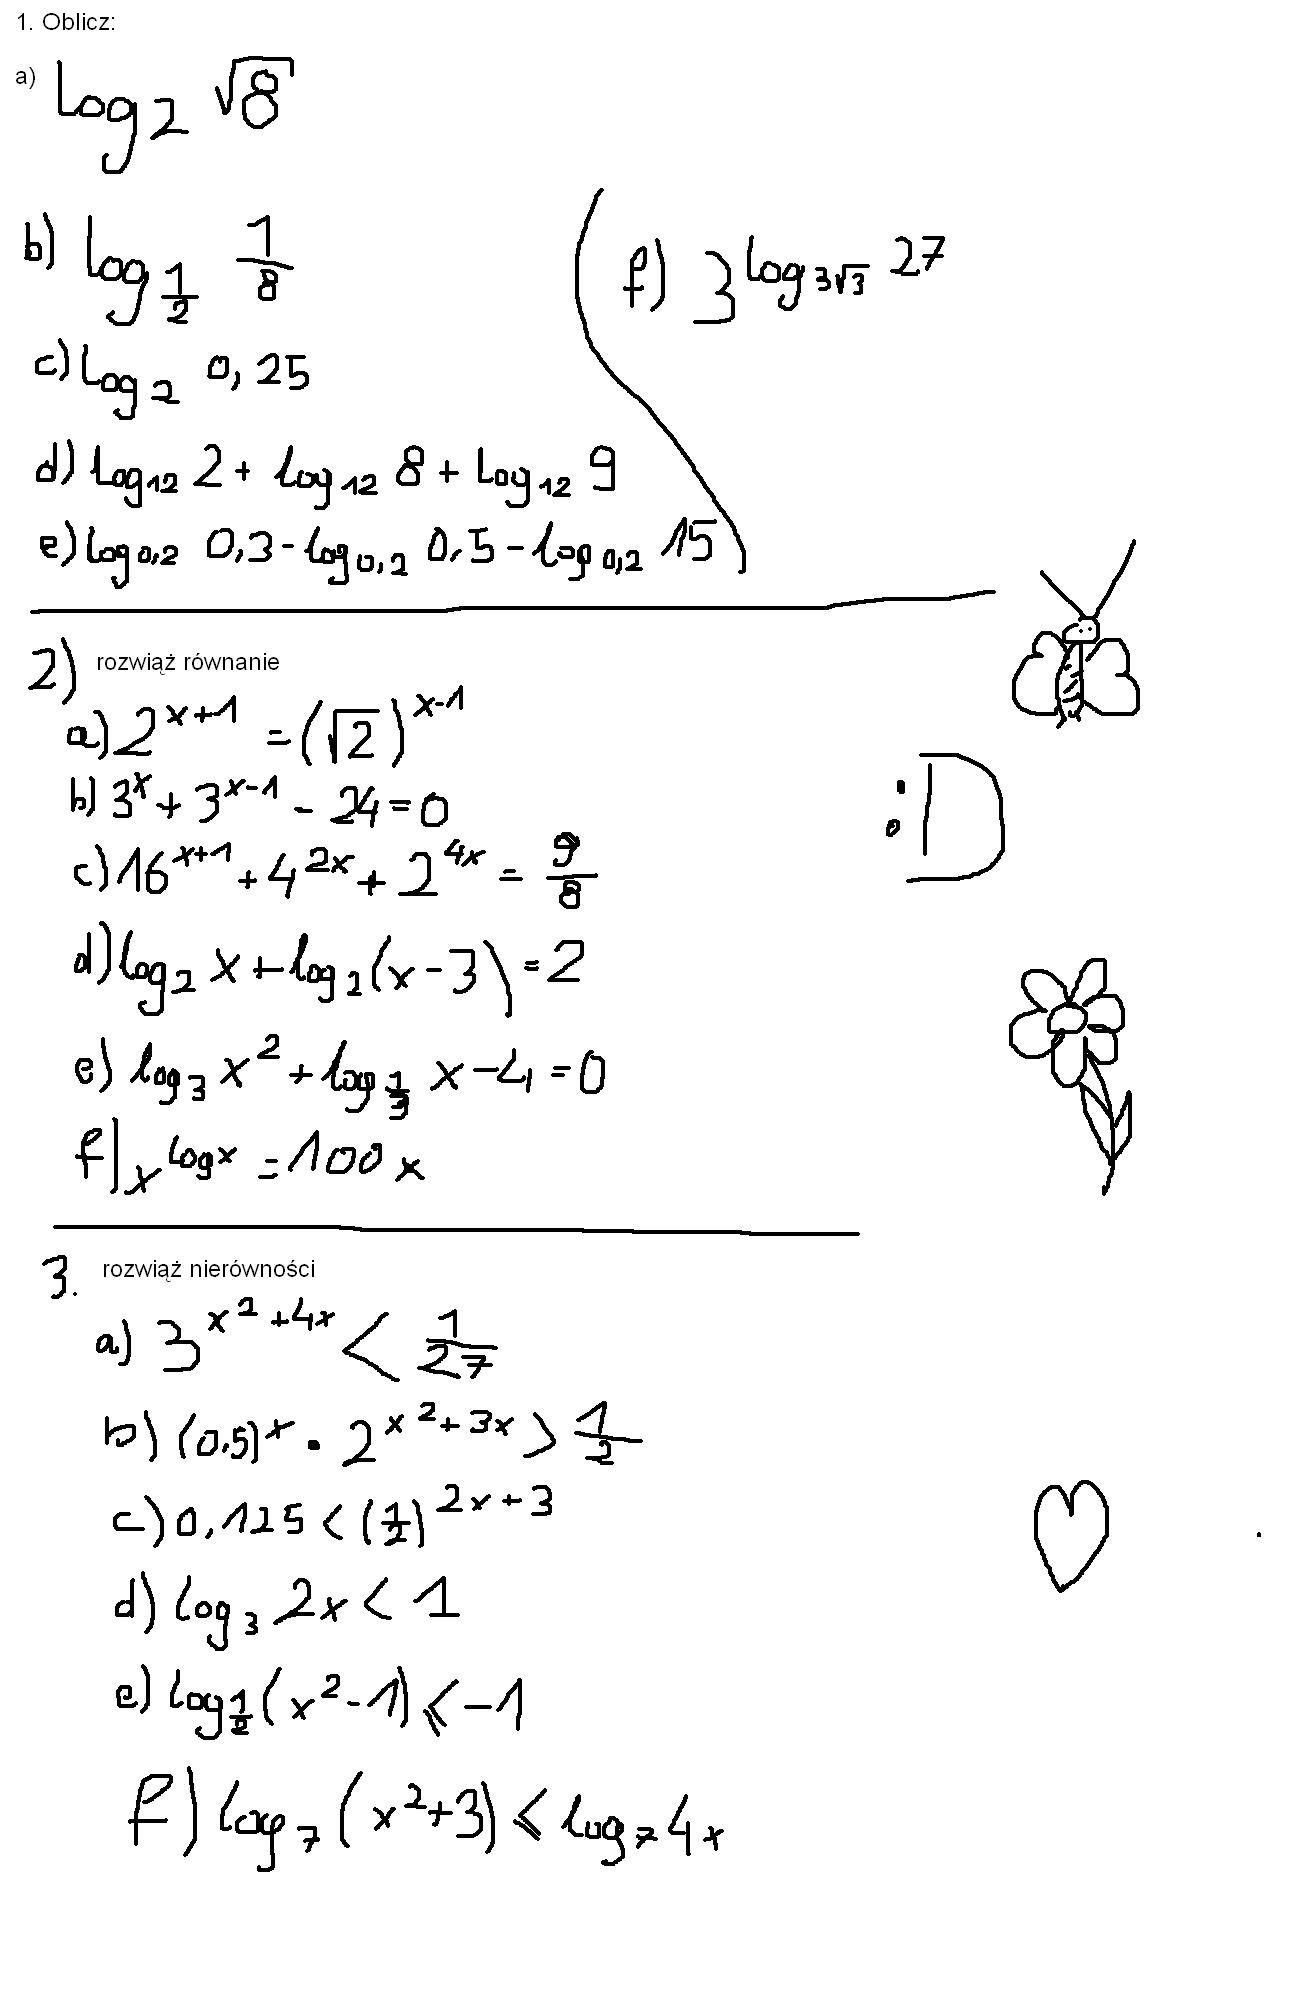 1. Oblicz:
a) log₂ √8
b) log_{1/2} 1/8
c) log₂ 0,25
d) log₁₂ 2 + log₁₂ 8 + log₁₂ 9
e) log_{0,2} 0,3 - log_{0,2} 0,5 - log_{0,2} 15
f) 3^{log_{3√3} 27}
2) rozwiąż równanie
a) 2^{x+1} = (√2)^{x-1}
b) 3^x + 3^{x-1} - 24 = 0
c) 16^{x+1} + 4^{2x} + 2^{4x} = 9/8
d) log₂ x + log₂ (x-3) = 2
e) log₃ x² + log_{1/3} x - 4 = 0
f) x^{log x} = 100x
:D
3. rozwiąż nierówności
a) 3^{x²+4x} < 1/27
b) (0,5)^x · 2^{x²+3x} > 1/2
c) 0,125 < (1/2)^{2x+3}
d) log₃ 2x < 1
e) log_{1/2} (x²-1) ≤ -1
f) log₇ (x²+3) ≤ log₇ 4x